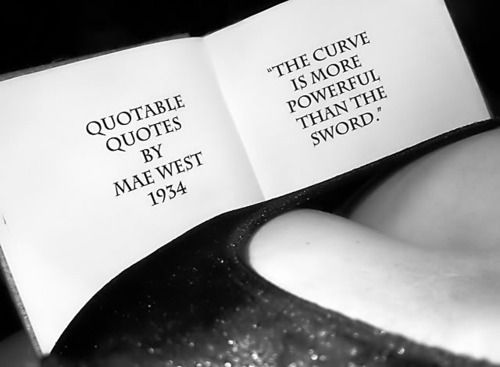 QUOTABLE
QUOTES
BY
MAE WEST
1934
"THE CURVE
IS MORE
POWERFUL
THAN THE
SWORD."